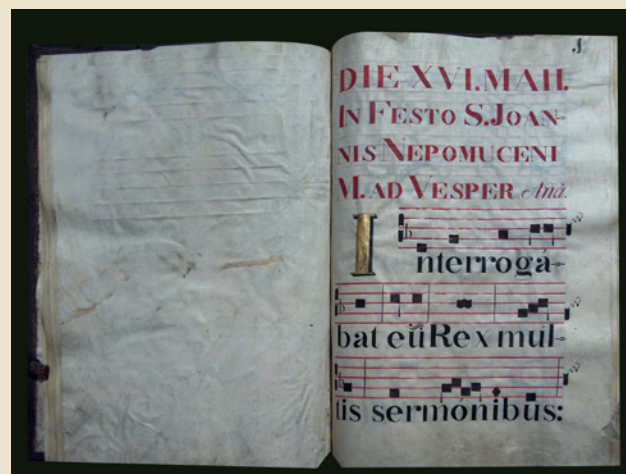 DIE XVI. MAII.
IN FESTO S. JOAN-
NIS NEPOMUCENI
M. AD VESPER Anã.
Interrogá-
bat eũ Rex mul-
tis sermónibus: